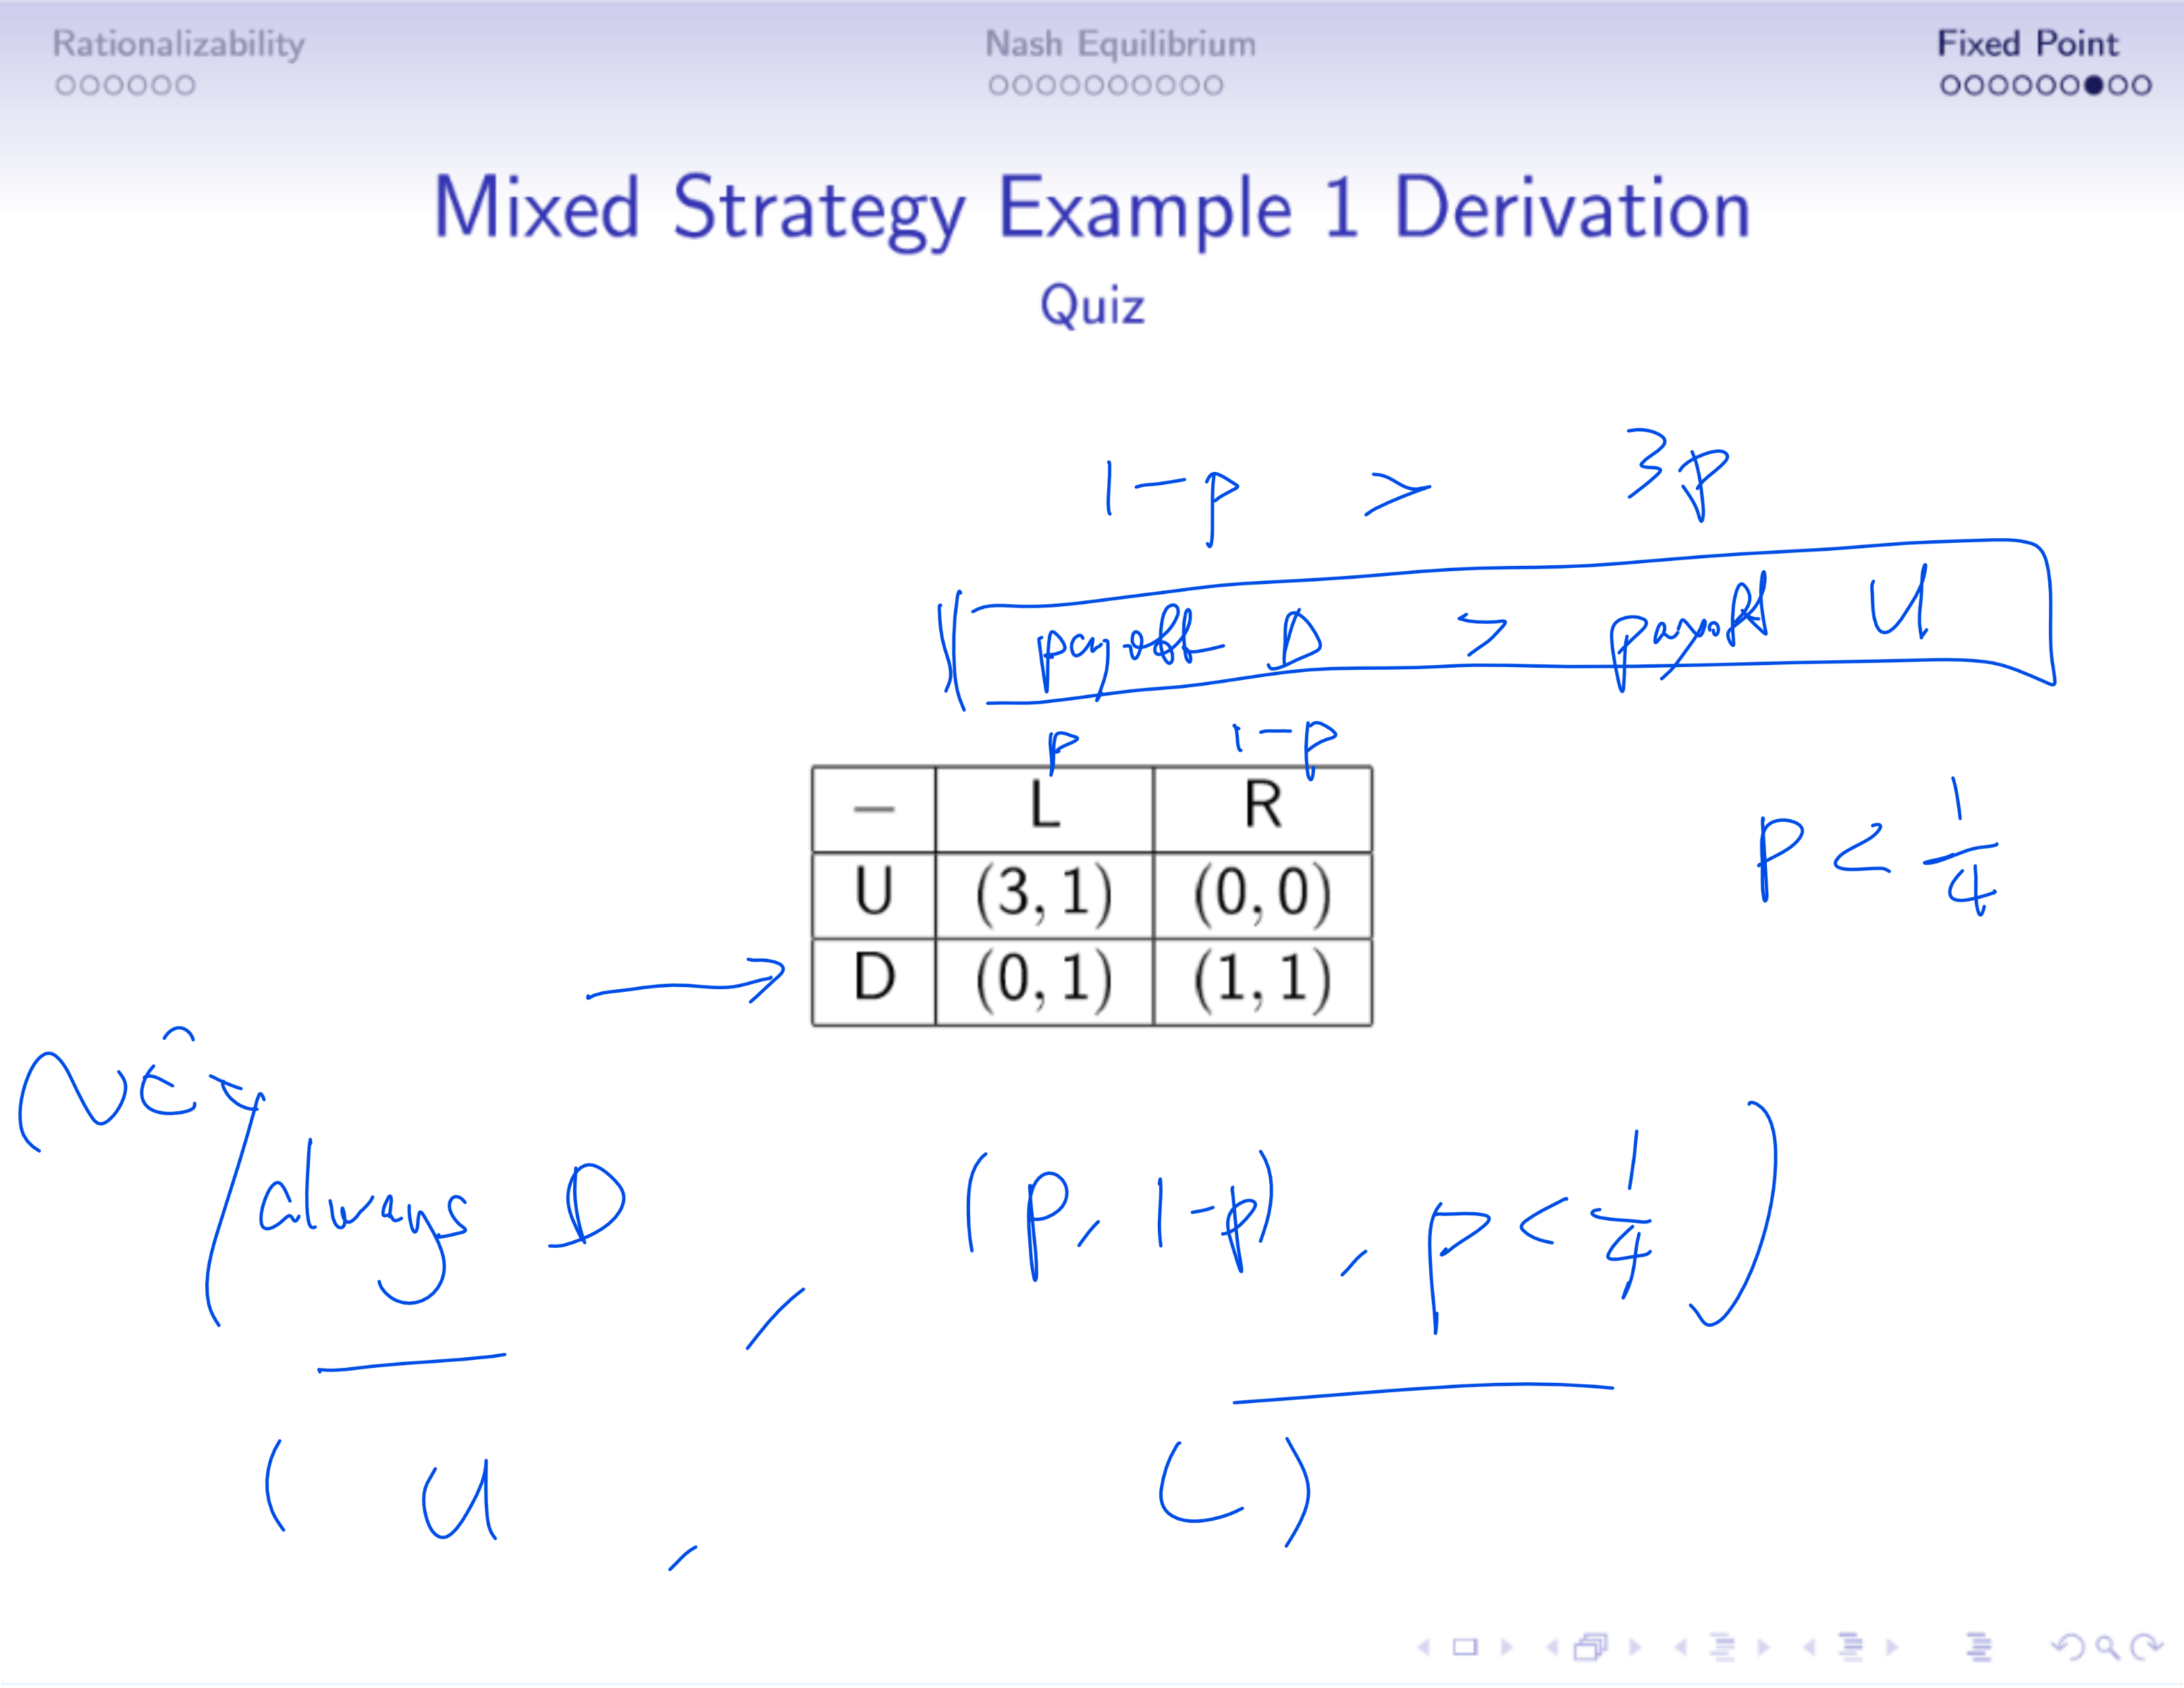 Rationalizability Nash Equilibrium Fixed Point
Mixed Strategy Example 1 Derivation
Quiz
1-p > 3p
payoff D > payoff U
p 1-p
– L R
U (3, 1) (0, 0)
D (0, 1) (1, 1)
p < 1/4
NE
(always D , (p, 1-p), p < 1/4)
(U, L)